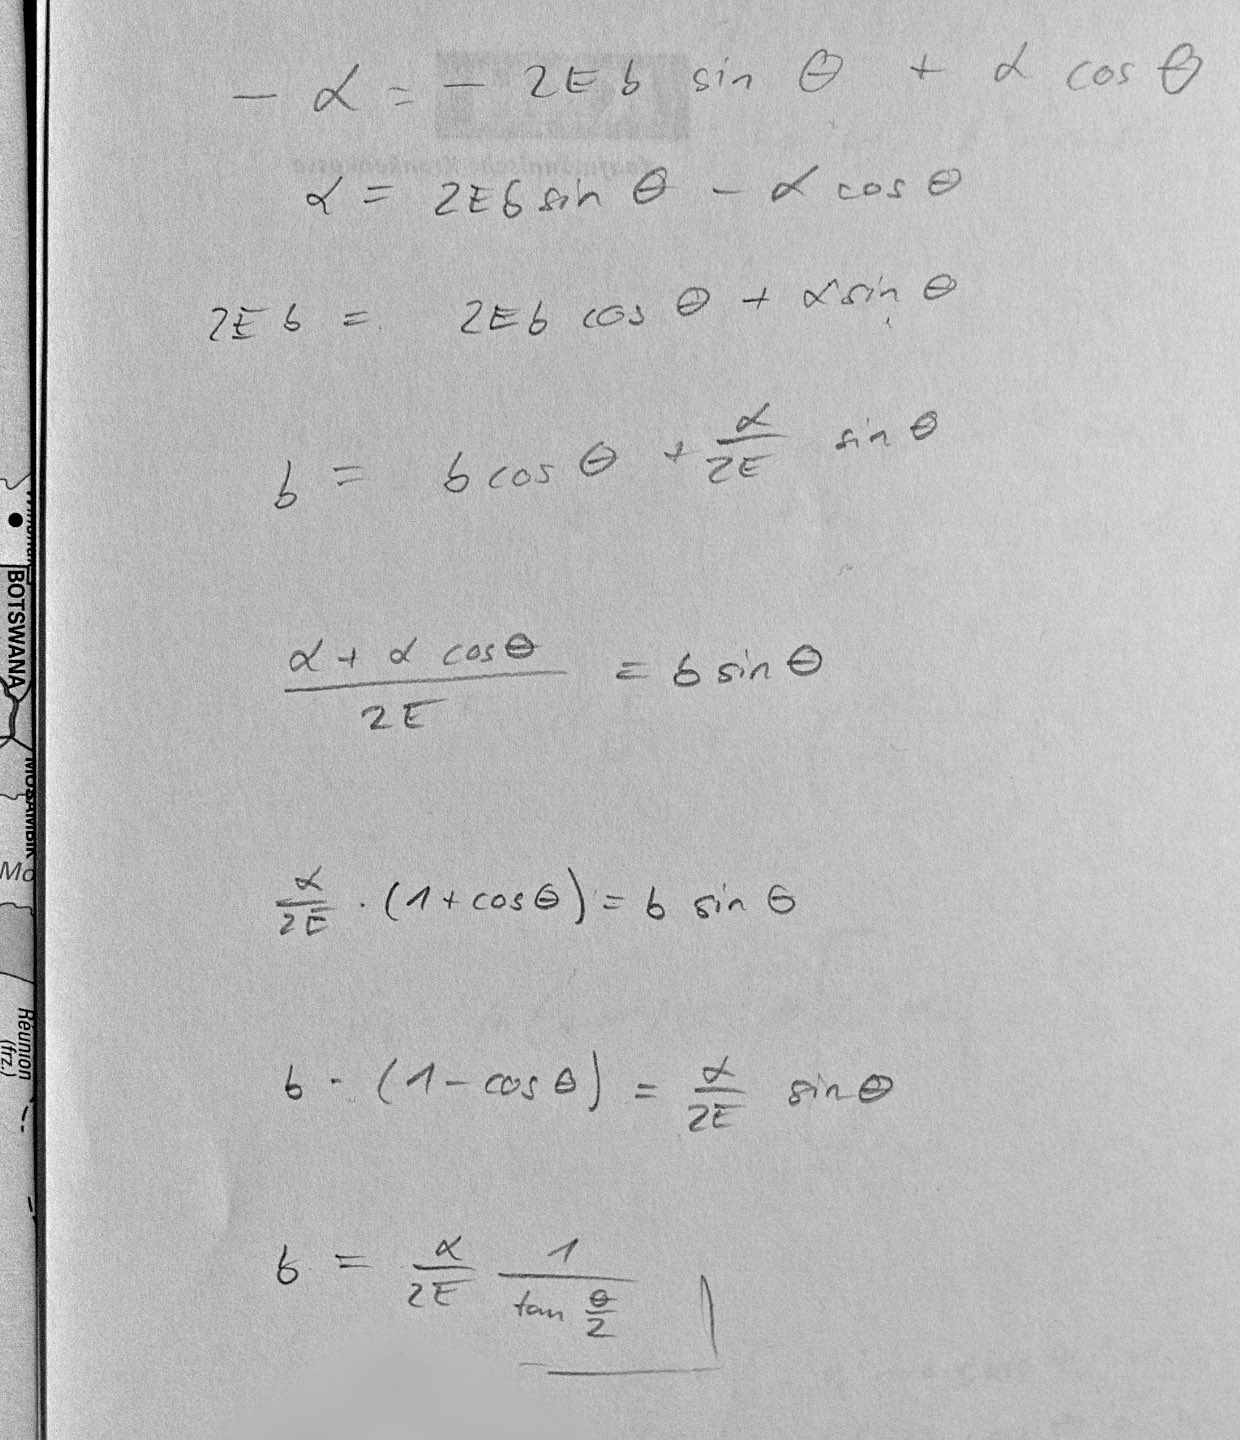 − α = − 2Eb sin θ + α cos θ
α = 2Eb sin θ − α cos θ
2Eb = 2Eb cos θ + α sin θ
b = b cos θ + α/2E sin θ
(α + α cos θ)/2E = b sin θ
α/2E · (1 + cos θ) = b sin θ
b · (1 − cos θ) = α/2E sin θ
b = α/2E 1/(tan θ/2)
BOTSWANA
MOSAMBIK
Mo
Réunion
(frz.)